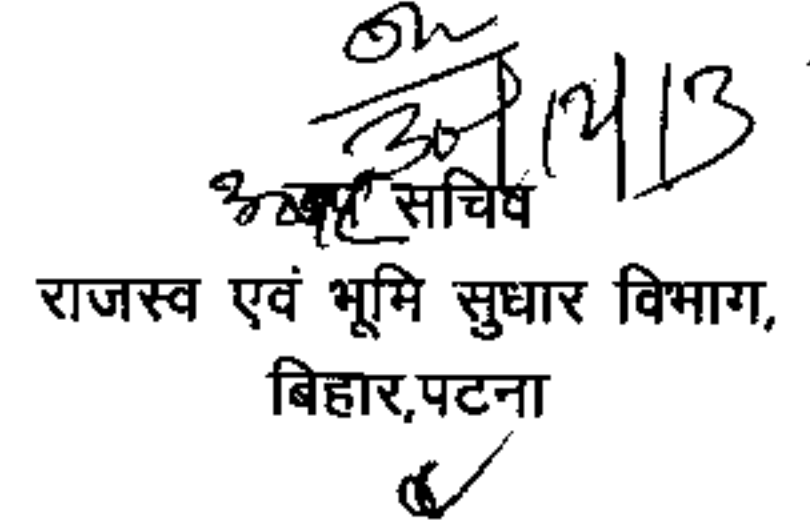 30/12/13
सचिव
राजस्व एवं भूमि सुधार विभाग,
बिहार,पटना